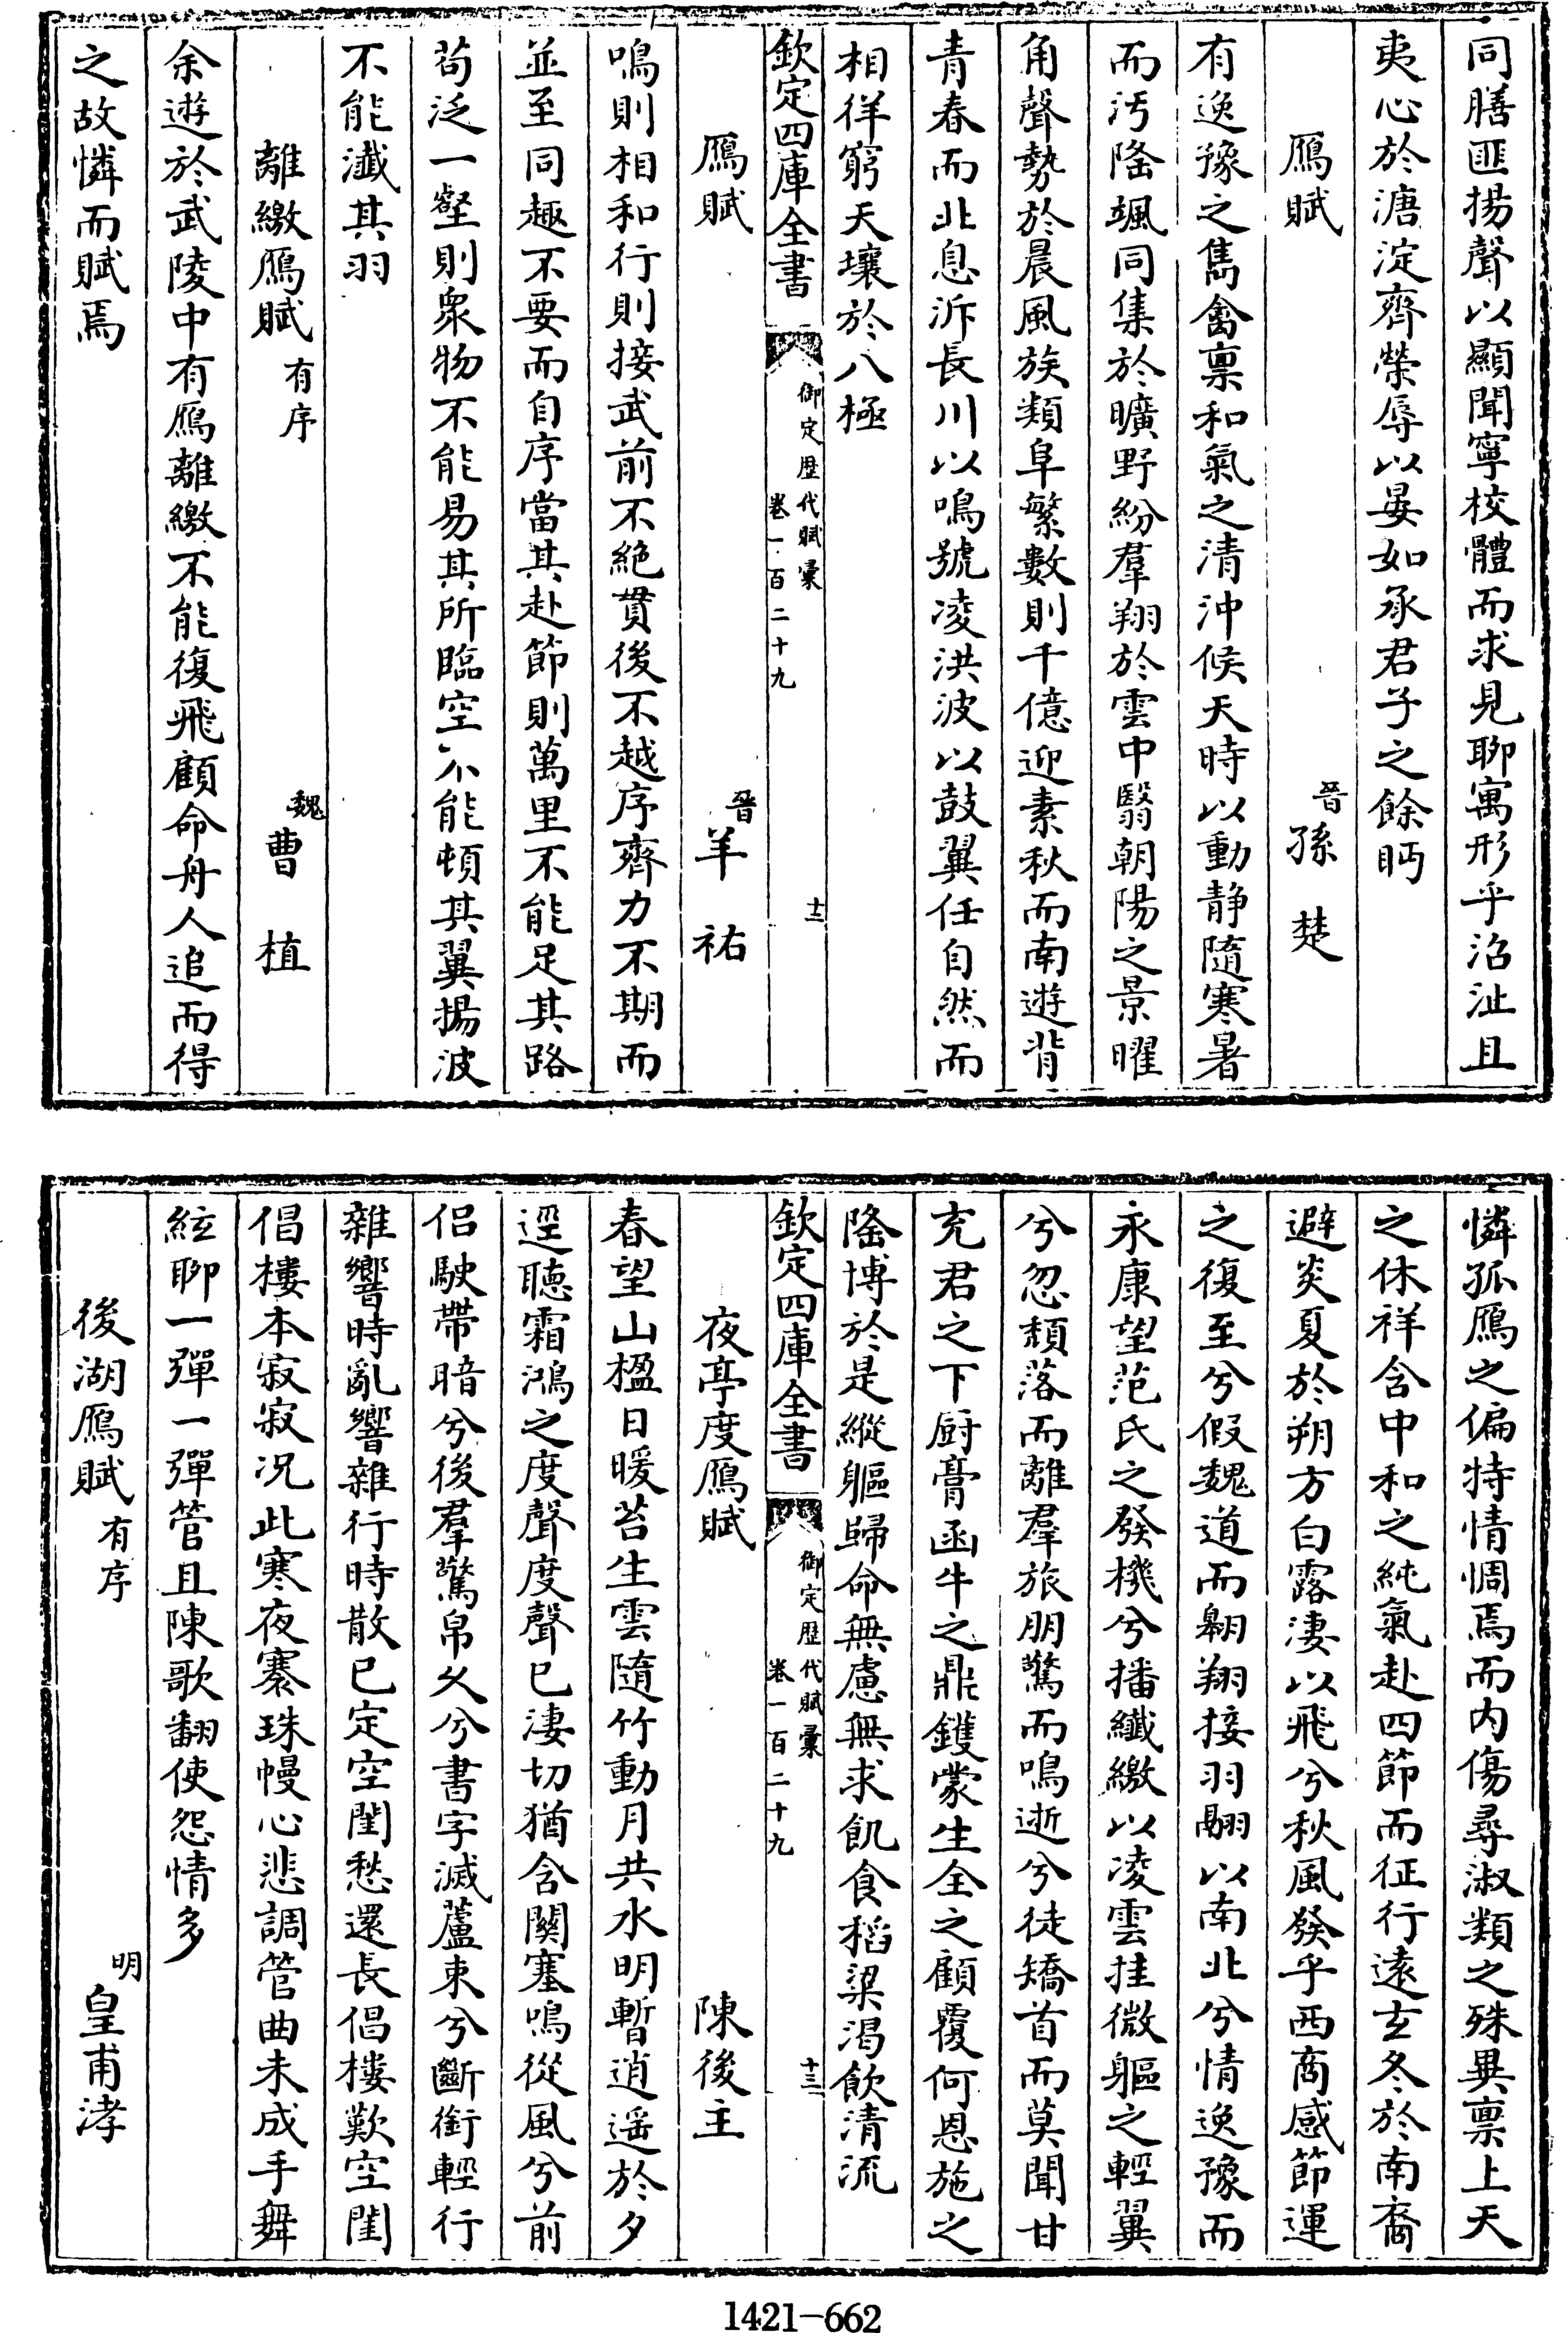 同膳匪揚聲以顯聞寧校體而求見聊寓形乎沼沚且
夷心於溏淀齊榮辱以晏如承君子之餘眄
鴈賦 晉孫楚
有逸豫之雋禽禀和氣之清沖候天時以動静隨寒暑
而汚隆颯同集於曠野紛羣翔於雲中翳朝陽之景曜
角聲勢於晨風族類阜繁數則千億迎素秋而南遊背
青春而北息泝長川以鳴號凌洪波以鼓翼任自然而
相徉窮天壤於八極
欽定四庫全書 御定歴代賦彙 卷一百二十九 十二
鴈賦 晉羊祐
鳴則相和行則接武前不絶貫後不越序齊力不期而
並至同趣不要而自序當其赴節則萬里不能足其路
苟泛一壑則衆物不能易其所臨空不能頓其翼揚波
不能濺其羽
離繳鴈賦 有序 魏曹植
余遊於武陵中有鴈離繳不能復飛顧命舟人追而得
之故憐而賦焉
憐孤鴈之偏特情惆焉而内傷尋淑類之殊異禀上天
之休祥含中和之純氣赴四節而征行遠玄冬於南裔
避炎夏於朔方白露淒以飛兮秋風發乎西商感節運
之復至兮假魏道而翱翔接羽翮以南北兮情逸豫而
永康望范氏之發機兮播纎繳以凌雲挂微軀之輕翼
兮忽頽落而離羣旅朋驚而鳴逝兮徒矯首而莫聞甘
充君之下厨膏函牛之鼎鑊蒙生全之顧覆何恩施之
隆博於是縱軀歸命無慮無求飢食稻粱渴飲清流
欽定四庫全書 御定歴代賦彙 卷一百二十九 十三
夜亭度鴈賦 陳後主
春望山楹日暖苔生雲隨竹動月共水明暫逍遥於夕
逕聽霜鴻之度聲度聲已淒切猶含關塞鳴從風兮前
侣駛帶暗兮後羣驚帛乆兮書字滅蘆束兮斷銜輕行
雜響時亂響雜行時散已定空閨愁還長倡樓歎空閨
倡樓本寂寂况此寒夜褰珠幔心悲調管曲未成手舞
絃聊一彈一彈管且陳歌翻使怨情多
後湖鴈賦 有序 明皇甫涍
1421-662